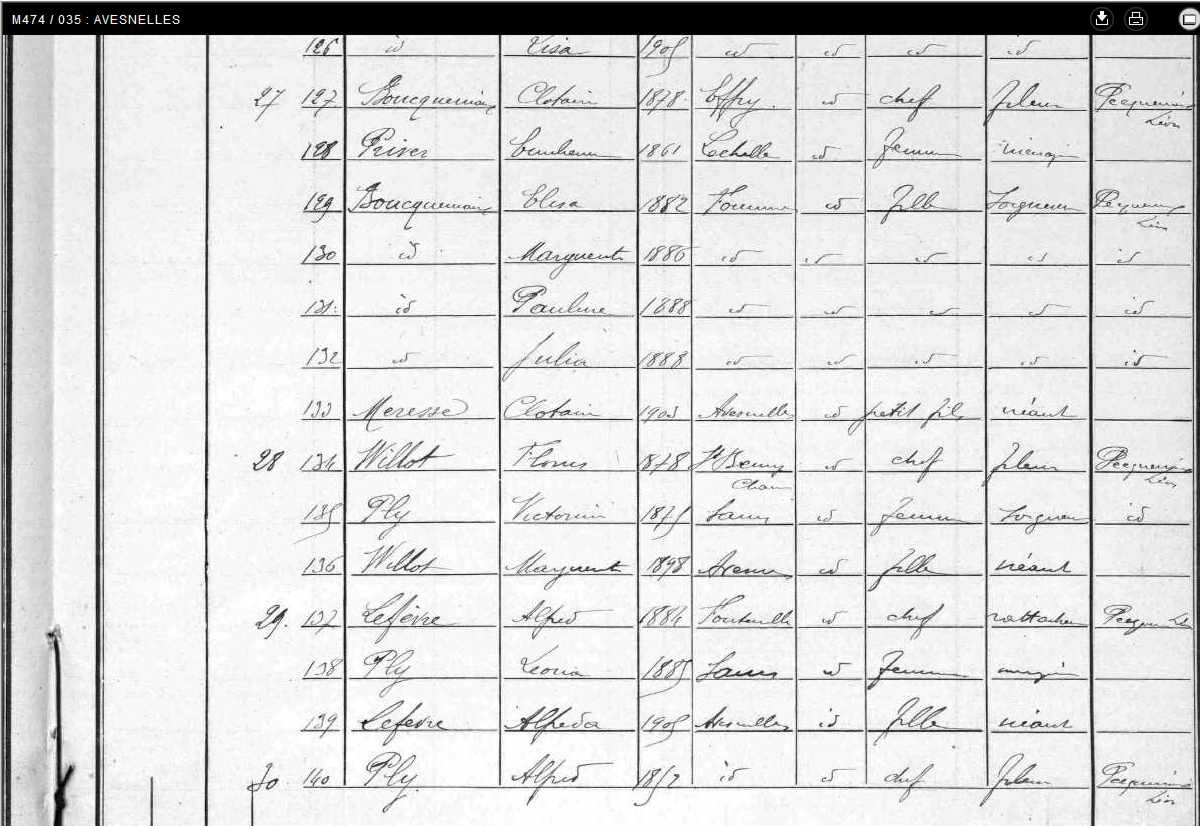 M474 / 035 : AVESNELLES
126 id Lisa 1905 id id id id
27 127 Boucquemain Clotaire 1878 Effry id chef fileur Pecqueriaux
Léon
128 1861 Lechelle id femme
129 Boucquemain Elisa 1882 id fille soigneuse
Léon
130 id Marguerite 1886 id id id id id
131 id Pauline 1888 id id id id id
132 id Julia 1888 id id id id id
133 Meresse Clotaire 1903 Avesnelles id petit fils néant
28 134 Willot Florus 1878 St Remy id chef fileur Pecqueriaux
Léon
135 Ply Victorine 1875 Sains id femme soigneuse id
136 Willot Marguerite 1898 Avesnes id fille néant
29 137 Lefèvre Alfred 1884 id chef rattacheur
138 Ply Leonia 1885 Sains id femme
139 Lefevre Alfreda 1905 Avesnelles id fille néant
30 140 Ply Alfred 1852 id id chef fileur Pecqueriaux
Léon